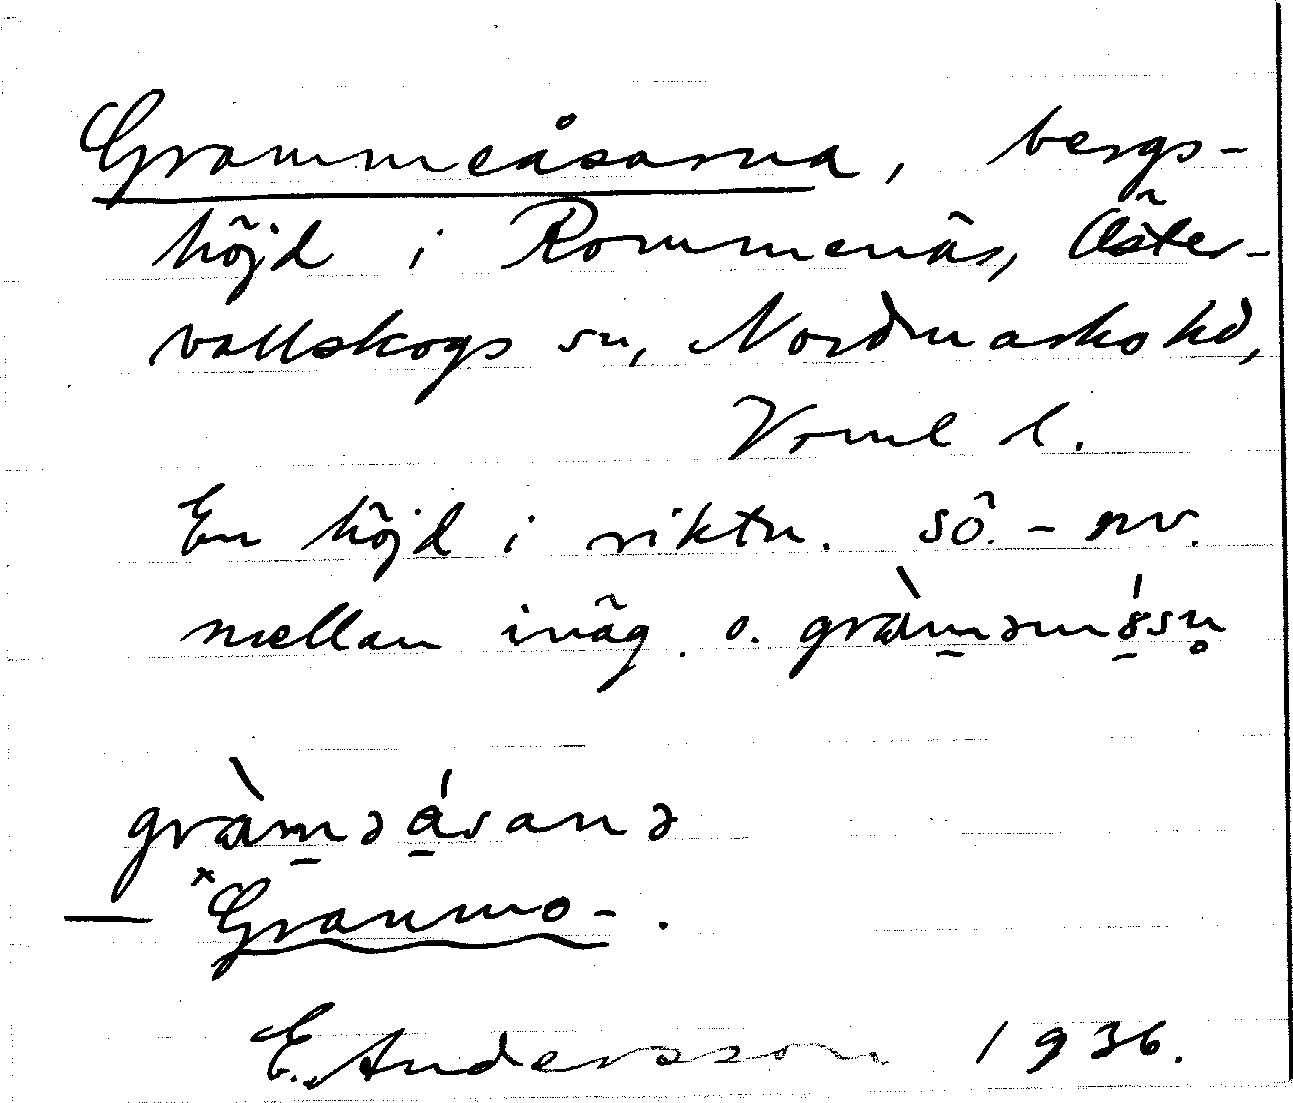 Grammeåsarna, bergs-
höjd i Rommenäs, Öster-
vallskogs sn, Nordmarks hd,
Vrml l.
En höjd i riktn. sö. - nv.
mellan inäg. o. gràm̠əmǿ̠sn̥
gràm̠əá̠sanə
— *Granmo- .
E. Andersson 1936.